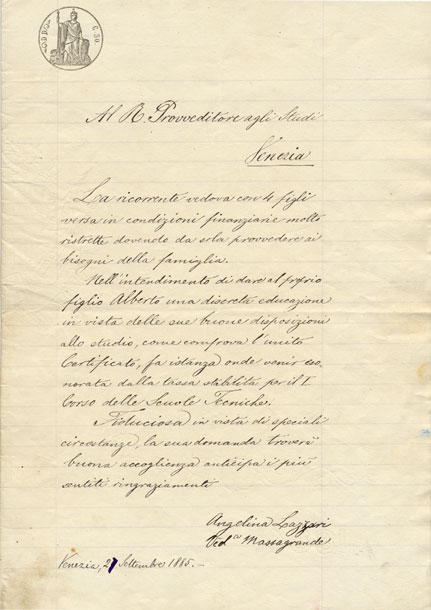 BOLLO
C. 50
Al R. Provveditore agli Studi
Venezia
La ricorrente vedova con 4 figli
versa in condizioni finanziarie molto
ristrette dovendo da sola provvedere ai
bisogni della famiglia.
Nell'intendimento di dare al proprio
figlio Alberto una discreta educazione
in vista delle sue buone disposizioni
allo studio, come comprova l'unito
Certificato, fa istanza onde venir eso
norata dalla tassa stabilita per il I
Corso delle Scuole Tecniche.
Fiduciosa in vista di speciali
circostanze, la sua domanda troverà
buona accoglienza anticipa i più
sentiti ringraziamenti
Angelina Lazzari
Ved.a Massagrande
Venezia, 21 Settembre 1885.-